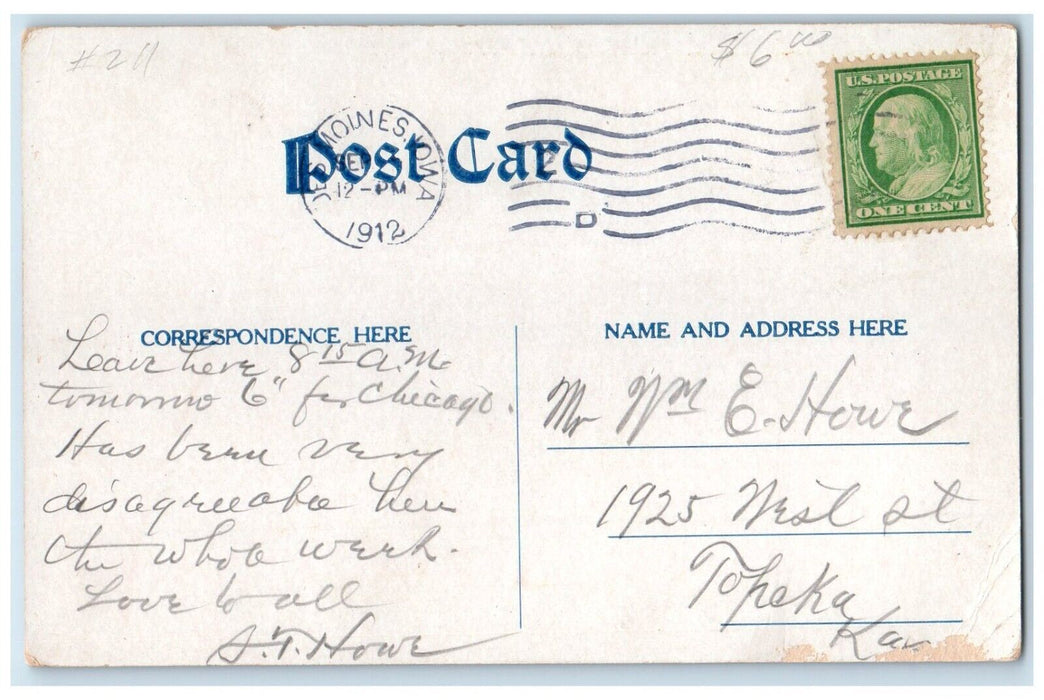 #211
$6.00
U.S. POSTAGE
ONE CENT
DES MOINES, IOWA
SEP
12-PM
1912
Post Card
CORRESPONDENCE HERE
NAME AND ADDRESS HERE
Leave here 8 15 A.M.
tomorrow 6" for Chicago.
Has been very
disagreeable here
the whole week.
Love to all
S.T. Howe
Mr Wm E. Howe
1925 West st
Topeka
Kan